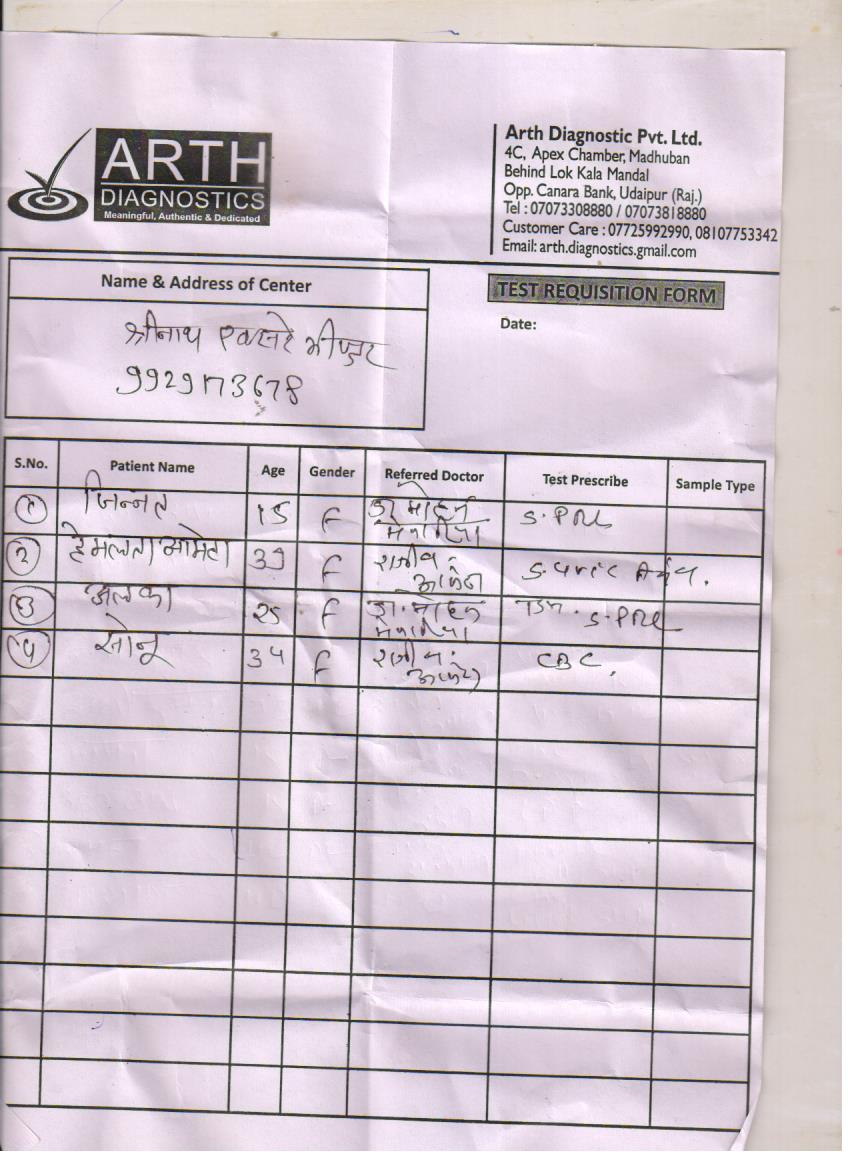 ARTH
DIAGNOSTICS
Meaningful, Authentic & Dedicated
Arth Diagnostic Pvt. Ltd.
4C, Apex Chamber, Madhuban
Behind Lok Kala Mandal
Opp. Canara Bank, Udaipur (Raj.)
Tel : 07073308880 / 07073818880
Customer Care : 07725992990, 08107753342
Email: arth.diagnostics.gmail.com
Name & Address of Center
TEST REQUISITION FORM
Date:
श्रीनाथ एक्सरे
9929173678
S.No. Patient Name Age Gender Referred Doctor Test Prescribe Sample Type
जिन्नत 15 F डा मोहन S.PRL
2 हेमलता आमेटा 39 F राजीव S.Uric
3 अलका 25 F डा. मोहन S.PRL
सोनू 34 F राजीव CBC.